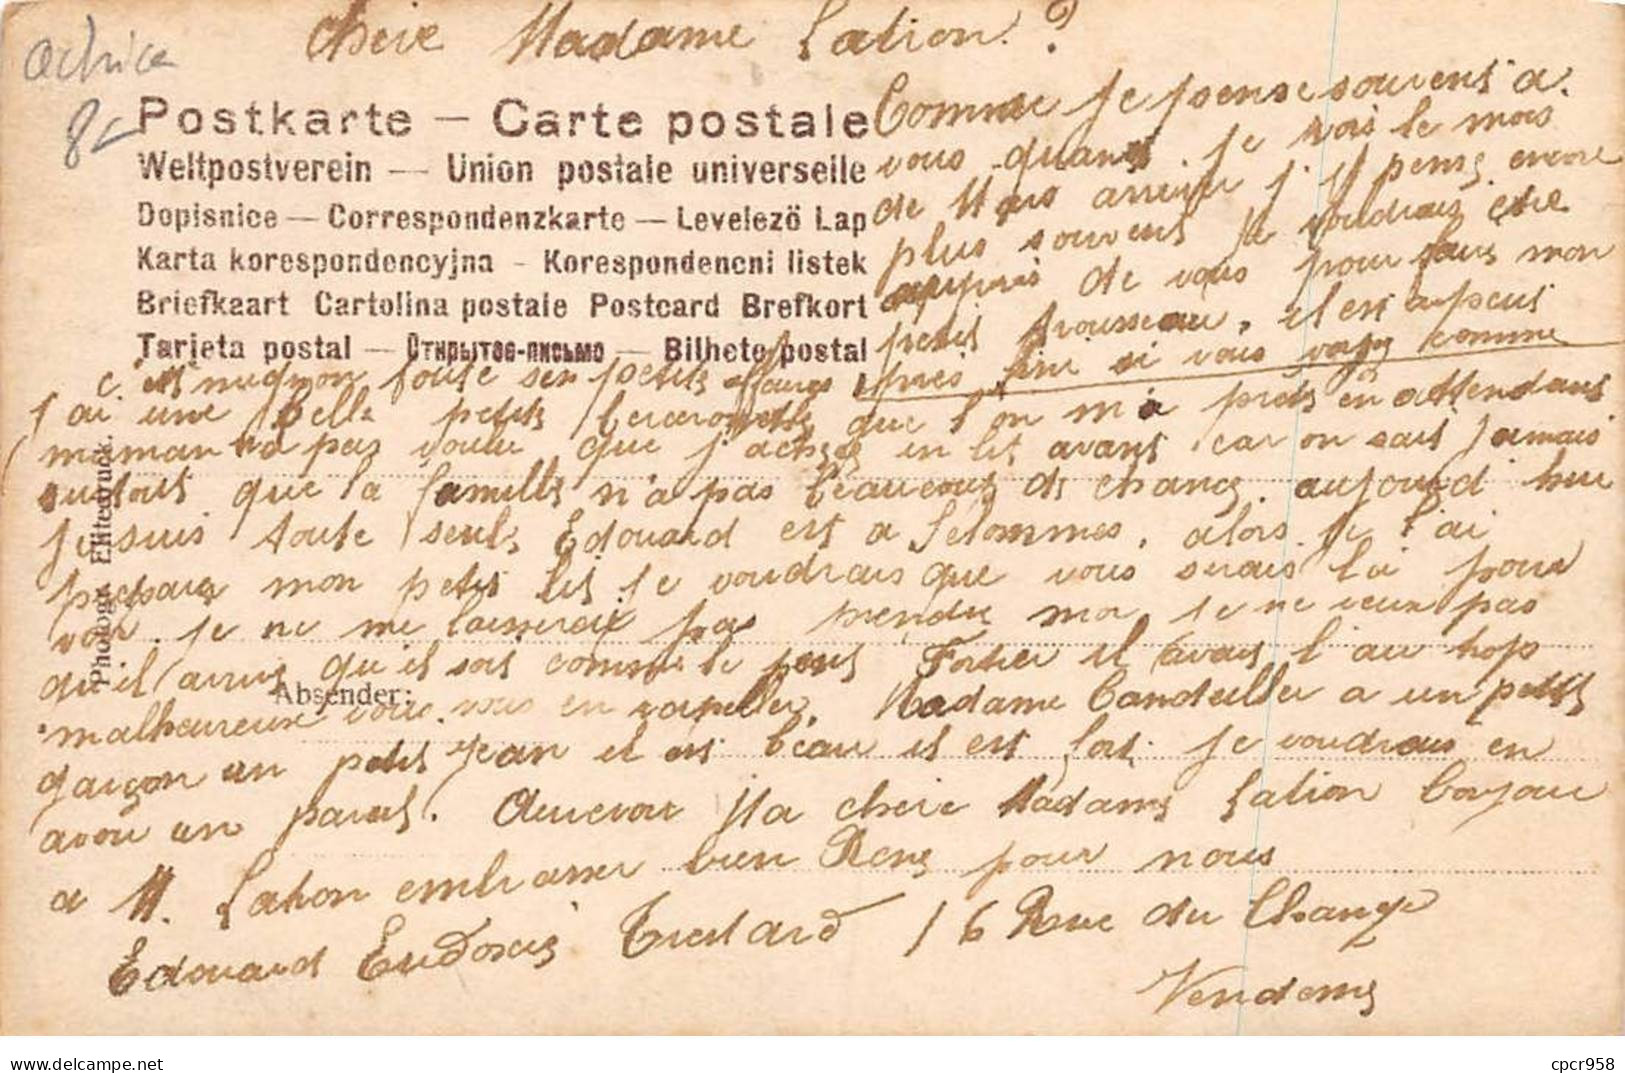 Chere Madame Lation ?
actrice
8c
Postkarte — Carte postale
Weltpostverein — Union postale universelle
Dopisnice — Correspondenzkarte — Levelezö Lap
Karta korespondencyjna - Korespondencni listek
Briefkaart Cartolina postale Postcard Brefkort
Tarjeta postal — Открытое-письмо — Bilhete postal
Comme je pense souvent a
vous quand je vois le mois
de Mars arriver j'y pense encore
plus souvent je voudrais être
auprès de vous pour fair mon
petit trousseau, il est a peut
près fini si vous voyez comme
c'est mignon toute ses petits affaires
j'ai une belle petite berceronette que l'on m'a prêté en attendant
maman n'a pas voulu que j'achete un lit avant car on sait jamais
surtout que la famille n'a pas beaucoup de chance. aujourd hui
je suis toute seule Edouard est a Selommes, alors je l'ai
preparer mon petit lit je voudrais que vous serais la pour
voir. je ne me laisserait pas prendre moi je ne veux pas
qu'il arrive qu'il soit comme le petit Fortier il avait l'air trop
malheureux vous vous en rappeller. Madame Candeiller a un petit
garçon un petit Jean il est beau il est fort. je voudrais en
avoir un pareil. Aurevoir Ma chere Madame Lation Bonjour
a M. Lation embrasser bien Rene pour nous
Edouard Eudoxie Trestard 16 Rue du Change
Vendome
Photogr. Elitedruck.
Absender:
cpcr958